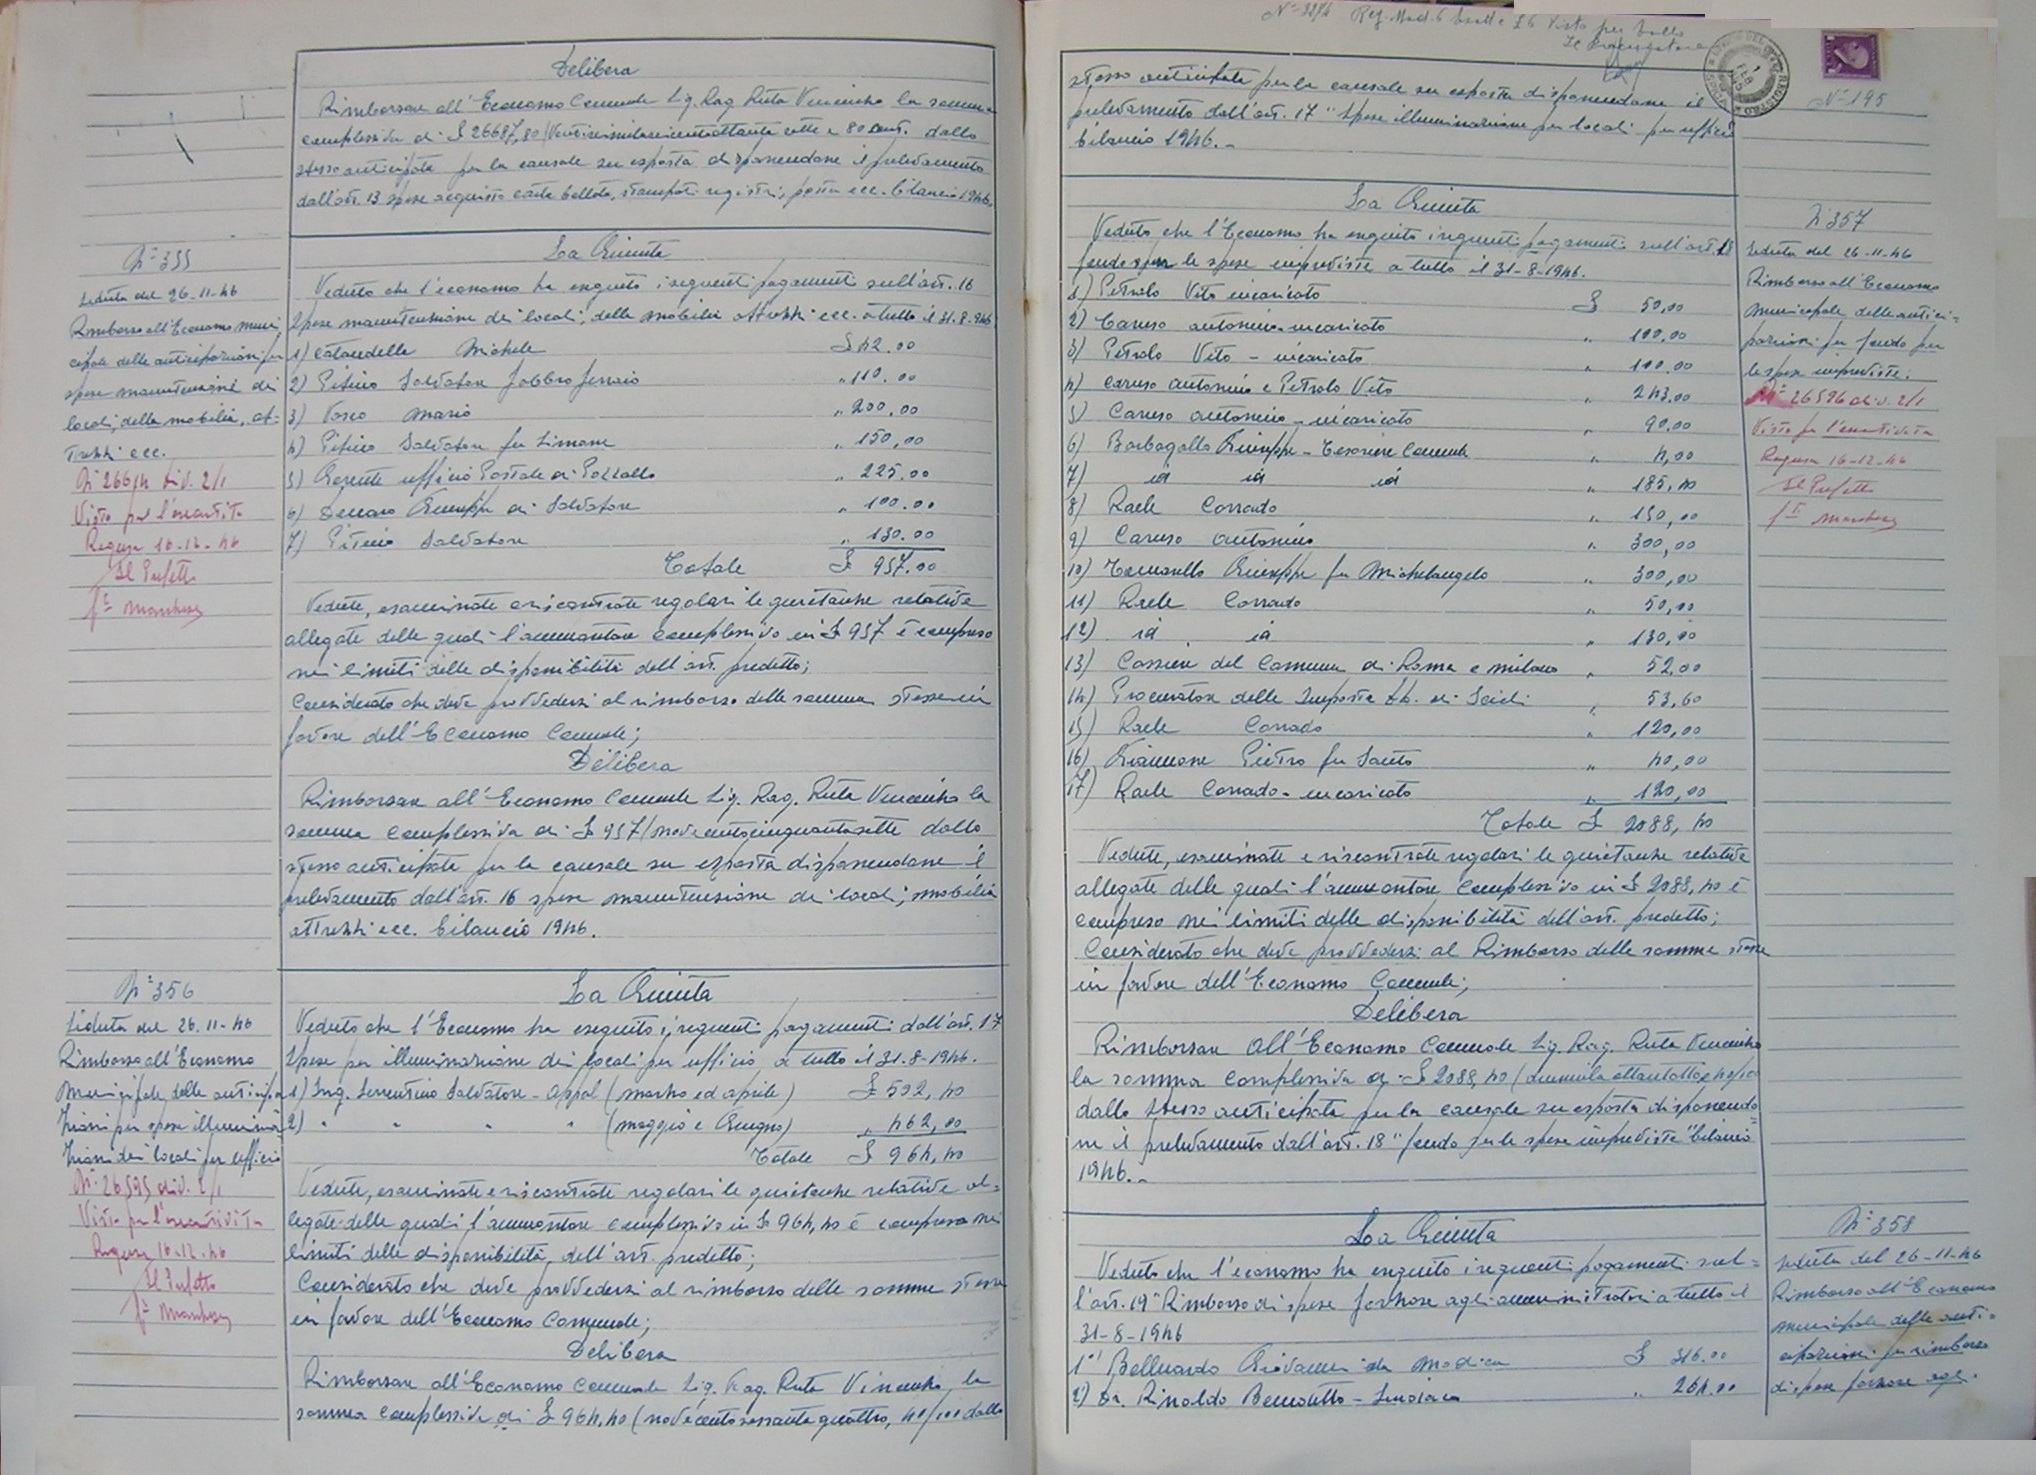 Delibera
Rimborsare all'Economo Comunale Sig. Rag. Ruta Vincenzo la somma
complessiva di £ 26687,80 (Ventiseimilaseicentottantasette e 80 cent. dallo
stesso anticipata per la causale su esposta disponendone il prelevamento
dall'art. 13 spese acquisto carta bollata, stampati registri, posta ecc. bilancio 1946.
N° 355
Seduta del 26-11-46
Rimborso all'Economo muni
cipale delle anticipazioni per
spese manutenzione dei
locali, della mobilia, at-
trezzi ecc.
N° 26614 Div. 2/1
Visto per l'esecutività
Ragusa 16-12-46
Il Prefetto
La Giunta
Veduto che l'economo ha eseguito i seguenti pagamenti sull'art. 16
Spese manutenzione dei locali, della mobilia attrezzi ecc. a tutto il 31-8-946
1) Cataudella Michele £ 42.00
2) Pitino Salvatore fabbro ferraio " 110.00
3) Vasco Mario " 200,00
4) Pitino Salvatore fu Simone " 150,00
5) Gerente ufficio Postale di Pozzallo " 225.00
6) Giuseppe di Salvatore " 100.00
7) Pitino Salvatore " 130.00
Totale £ 957.00
Vedute, esaminate e riscontrate regolari le quietanze relative
allegate delle quali l'ammontare complessivo in £ 957 è compreso
nei limiti delle disponibilità dell'art. predetto;
Considerato che deve provvedersi al rimborso delle somme stesse in
favore dell'Economo Comunale;
Delibera
Rimborsare all'Economo Comunale Sig. Rag. Ruta Vincenzo la
somma complessiva di £ 957 (novecentocinquantasette dallo
stesso anticipate per la causale su esposta disponendone il
prelevamento dall'art. 16 spese manutenzione dei locali, mobilia
attrezzi ecc. bilancio 1946.
N° 356
Seduta del 26.11-46
Rimborso all'Economo
Municipale delle anticipa
zioni per spese illumina
zioni dei locali per ufficio
N° 26595 div. 2/1
Visto per l'esecutività
Ragusa 16-12-46
Il Prefetto
La Giunta
Veduto che l'Economo ha eseguito i seguenti pagamenti dall'art. 17
Spese per illuminazione dei locali per ufficio a tutto il 31-8-1946.
1) Ing. Sorrentino Salvatore - Appal (marzo ed aprile) £ 502,40
2) " " " " (maggio e Giugno) " 462,00
Totale £ 964,40
Vedute, esaminate e riscontrate regolari le quietanze relative al-
legate delle quali l'ammontare complessivo in £ 964,40 è compreso nei
limiti delle disponibilità dell'art. predetto;
Considerato che deve provvedersi al rimborso delle somme stesse
in favore dell'Economo Comunale;
Delibera
Rimborsare all'Economo Comunale Sig. Rag. Ruta Vincenzo, la
somma complessiva di £ 964,40 (novecentosessantaquattro, 40/100 dallo
N° 195
stesso anticipata per la causale su esposta disponendone il
prelevamento dall'art. 17 "Spese illuminazione per locali per ufficio
bilancio 1946.-
La Giunta
Veduto che l'Economo ha eseguito i seguenti pagamenti sull'art. 18
fondo per le spese impreviste a tutto il 31-8-1946.
1) Petralo Vito incaricato £ 50,00
2) Caruso Antonino - incaricato " 100,00
3) Petralo Vito - incaricato " 100,00
4) Caruso Antonino e Petralo Vito " 243,00
5) Caruso Antonino - incaricato " 90,00
6) Barbagallo Giuseppe - Tesoriere Comunale " 4,00
7) id id id " 185,40
8) Raele Corrado " 150,00
9) Caruso Antonino " 300,00
10) Tomasello Giuseppe fu Michelangelo " 300,00
11) Raele Corrado " 50,00
12) id id " 130,00
13) Cassiere del Comune di Roma e Milano " 52,00
14) Procuratore delle Imposte di Scicli " 53,60
15) Raele Corrado " 120,00
16) Giannone Pietro fu Santo " 40,00
17) Raele Corrado - incaricato " 120,00
Totale £ 2088,40
Vedute, esaminate e riscontrate regolari le quietanze relative
allegate delle quali l'ammontare complessivo in £ 2088,40 è
compreso nei limiti delle disponibilità dell'art. predetto;
Considerato che deve provvedersi al Rimborso delle somme stesse
in favore dell'Economo Comunale;
Delibera
Rimborsare all'Economo Comunale Sig. Rag. Ruta Vincenzo
la somma complessiva di £ 2088,40 (duemilaottantotto e 40/00
dallo stesso anticipata per la causale su esposta disponendo
ne il prelevamento dall'art. 18 "fondo per le spese impreviste" bilancio
1946.-
N° 357
Seduta del 26-11-46
Rimborso all'Economo
Municipale delle antici=
pazioni per fondo per
le spese impreviste.
N° 26596 div. 2/1
Visto per l'esecutività
Ragusa 16-12-46
Il Prefetto
La Giunta
Veduto che l'economo ha eseguito i seguenti pagamenti sul=
l'art. 19 "Rimborso di spese forzose agli amministratori a tutto il
31-8-1946
1° Belluardo Giovanni da Modica £ 316.00
2) Dr. Rinaldo Benedetto - Sindaco " 264.00
N° 358
Seduta del 26-11-46
Rimborso all'Economo
Municipale delle anti=
cipazioni per rimborso
di spese forzose agli.